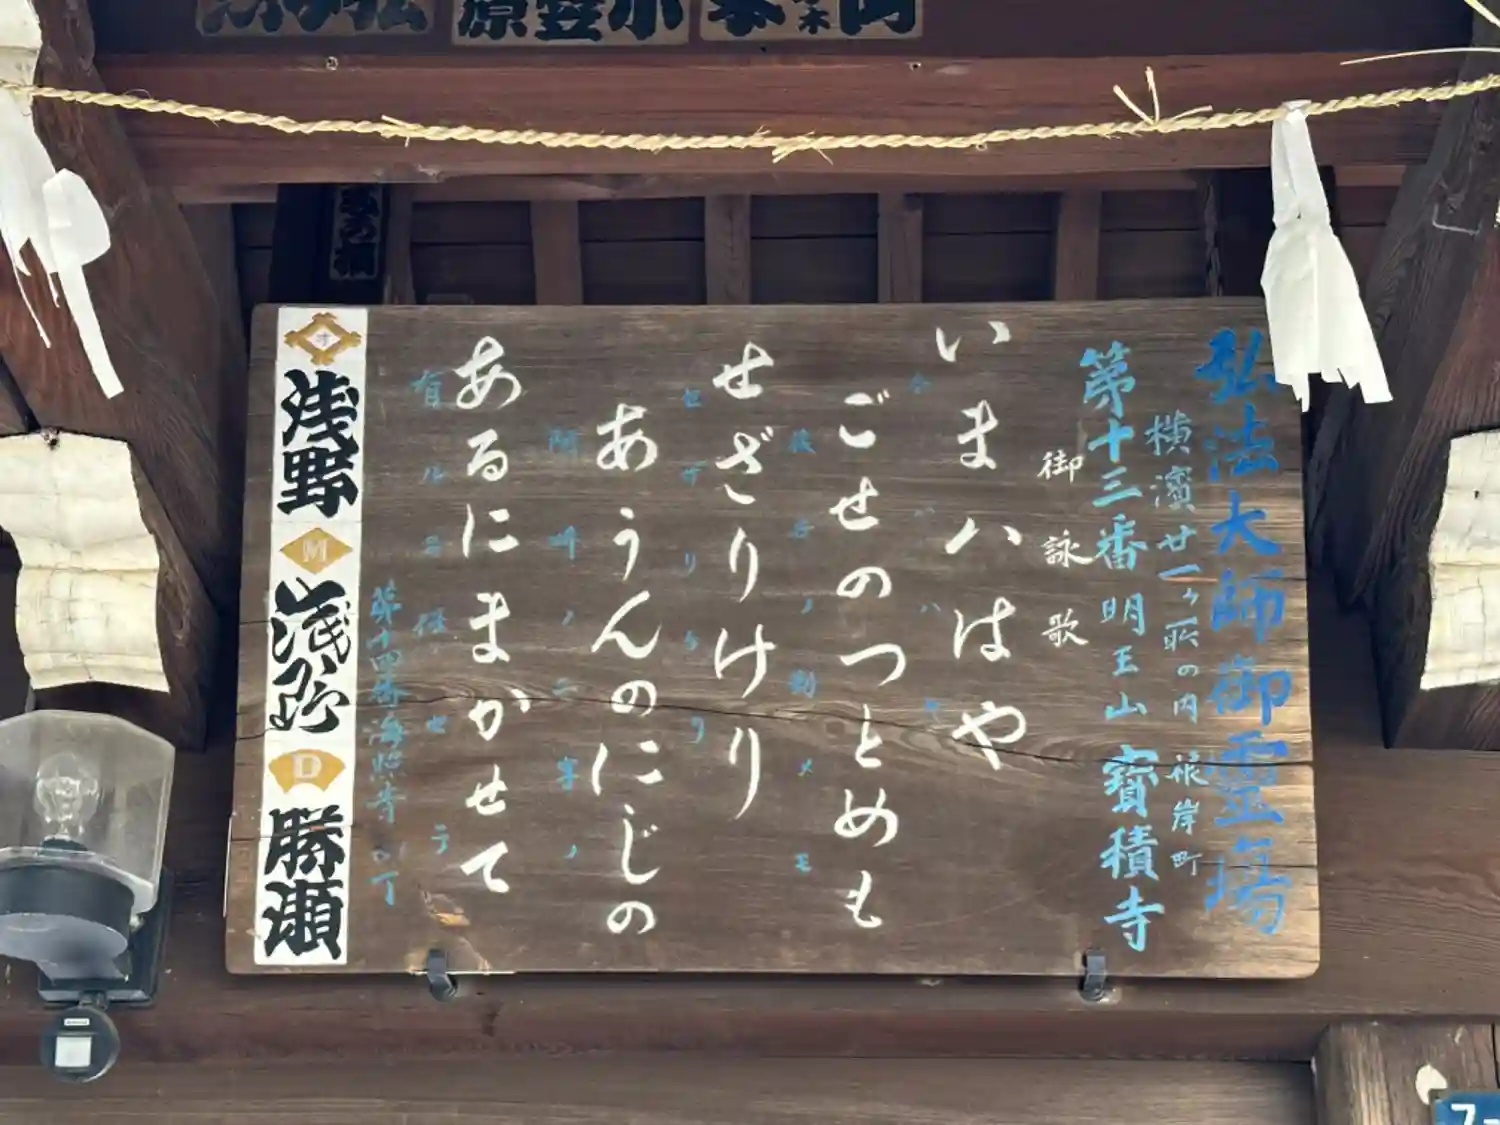 弘法大師御霊場
横濱廿一ヶ所の内 根岸町
第十三番 明王山 寳積寺
御詠歌
いまハはや
今ハハヤ
ごせのつとめも
後世ノ勤メモ
せざりけり
セザリケリ
あうんのにじの
阿吽ノ二字ノ
あるにまかせて
有ルニ任せテ
第十四番海照寺
浅野
M
D
勝瀬